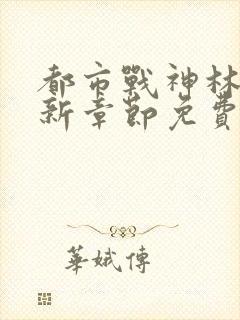 都市戰神林
新章節免費
華娥傳